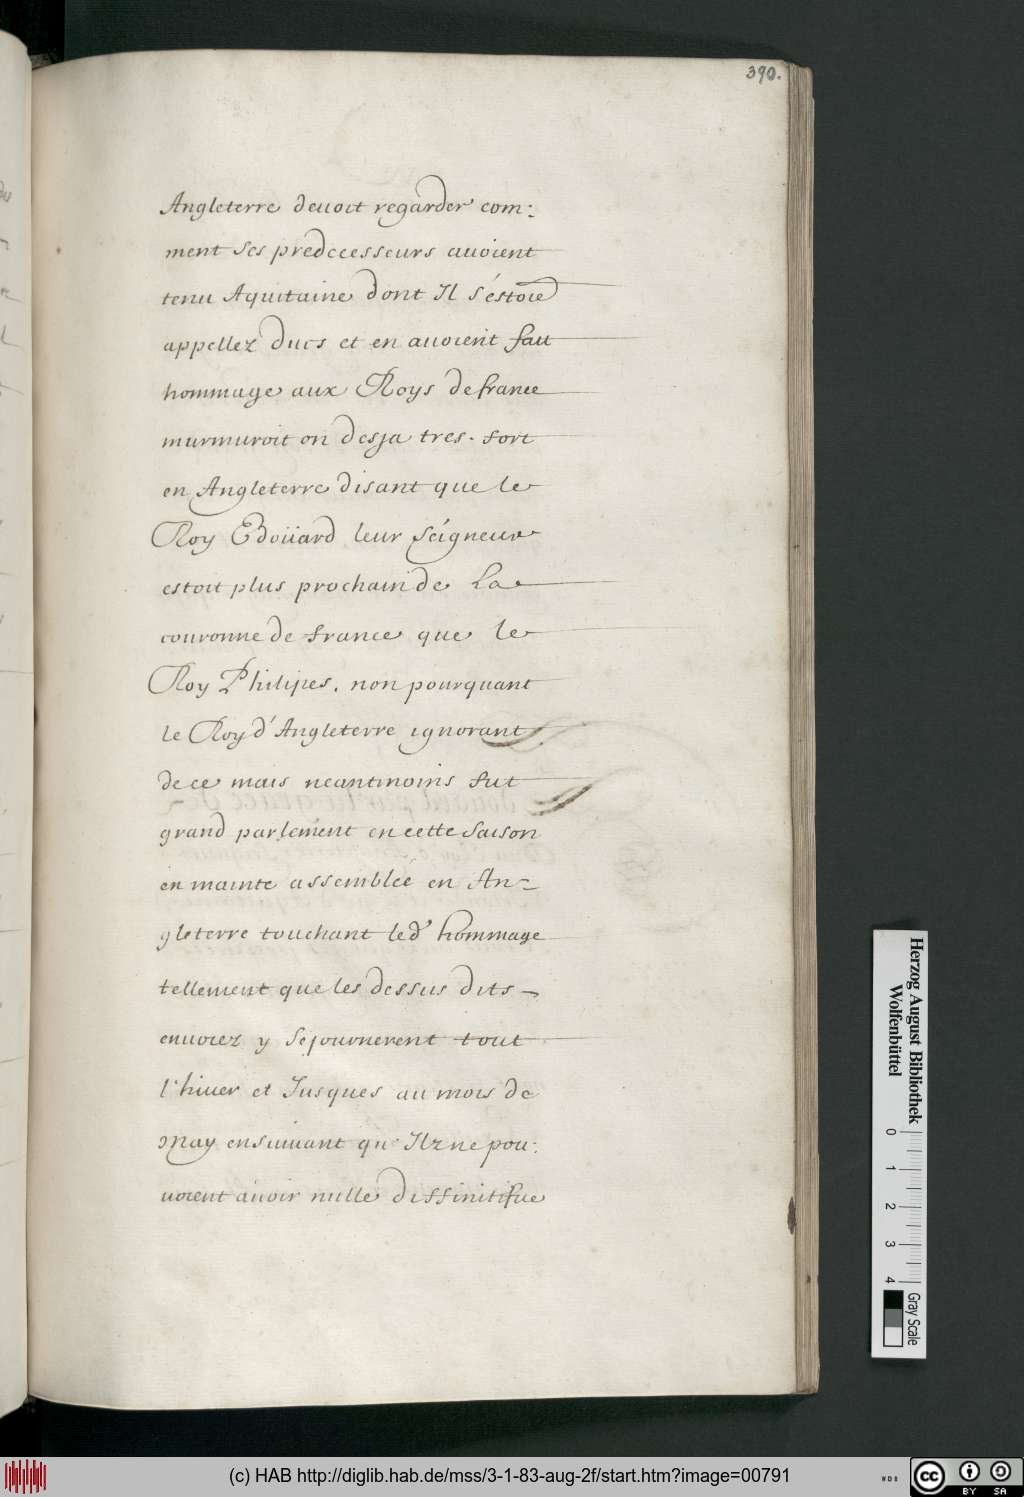 390.
Angleterre deuoit regarder com:
ment ses predecesseurs auoient
tenu Aquitaine dont Il s'éstoie
appellez Ducs et en auoient fait
hommage aux Roys de france
murmuroit on desja tres. fort
en Angleterre disant que le
Roy Edoüard leur Seigneur
estoit plus prochain de La
couronne de france que le
Roy Philipes. non pourquant
le Roy d'Angleterre ignorant
de ce mais neantmoins fut
grand parlement en cette Saison
en mainte assemblée en An-
gleterre touchant led' hommage
tellement que les dessus dits
enuoiez y sejournerent tout
l'hiuer et Jusques au mois de
May ensuiuant qu' Ilz ne pou:
uoient auoir nulle diffinitifue
Herzog August Bibliothek
Wolfenbüttel
0 1 2 3 4
Gray Scale
(c) HAB http://diglib.hab.de/mss/3-1-83-aug-2f/start.htm?image=00791
WDB
cc BY SA